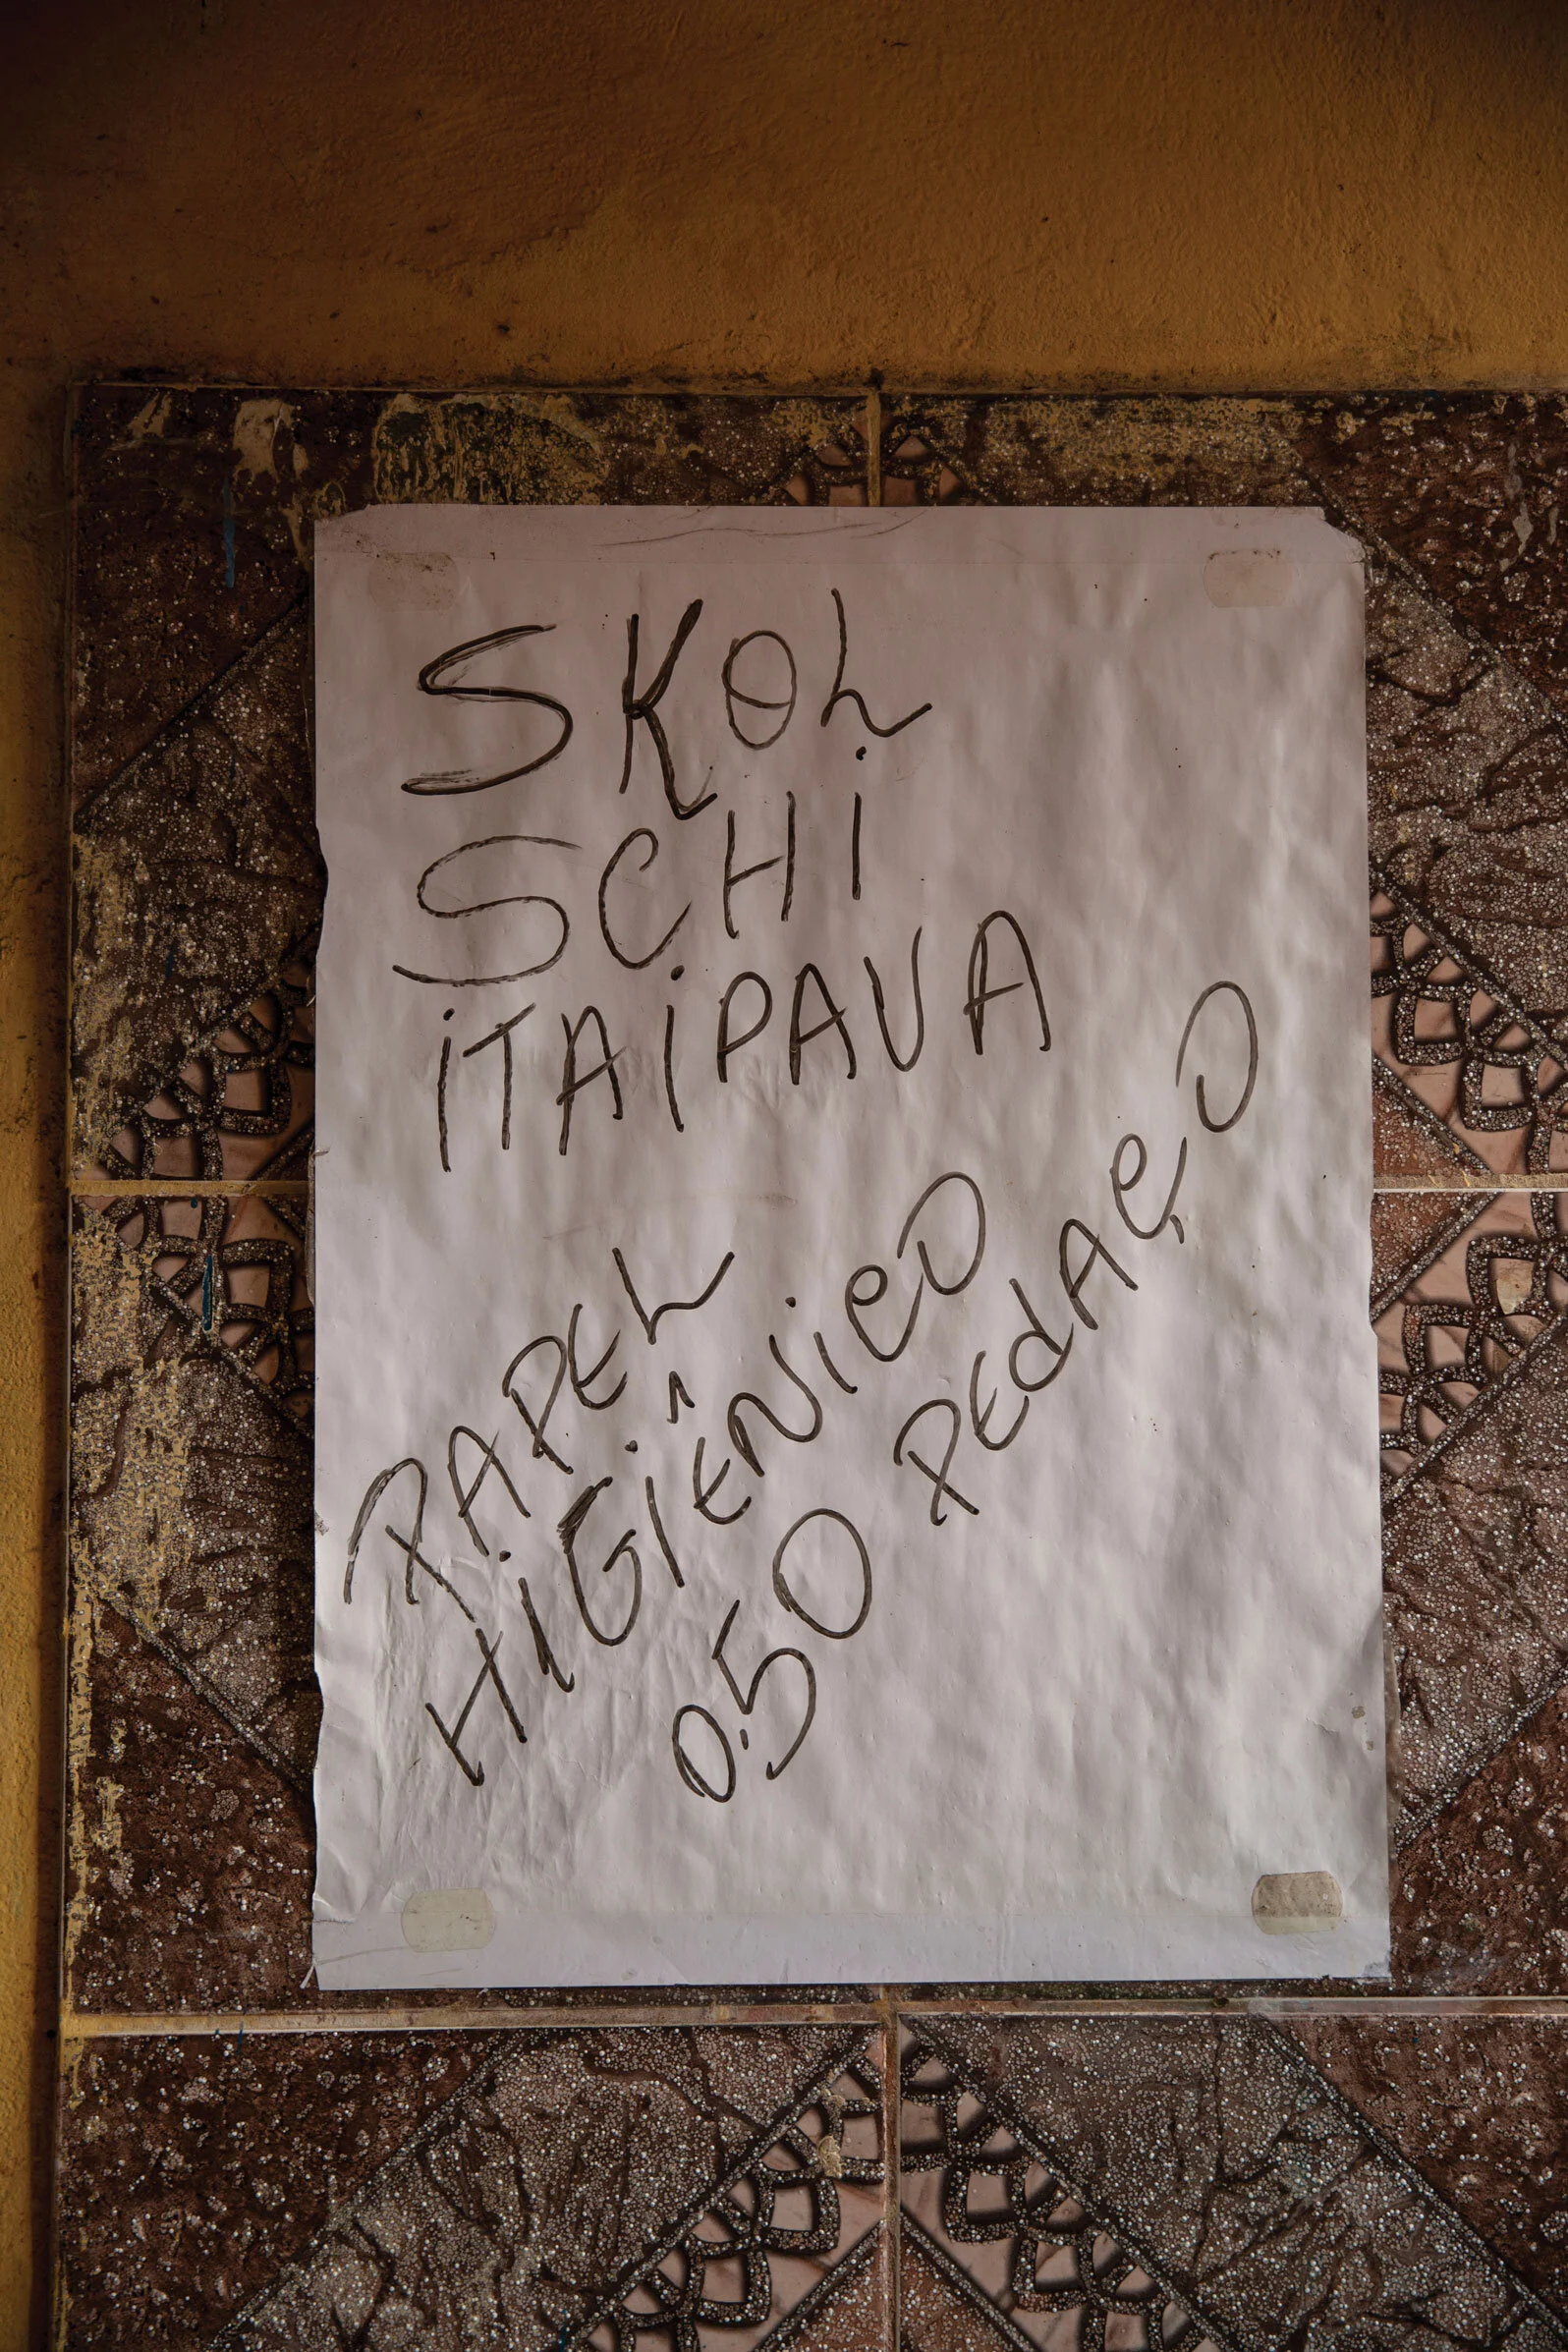 SKOL
SCHI
ITAIPAVA
PAPEL
HIGIÊNICO
0.50 PEDAÇO